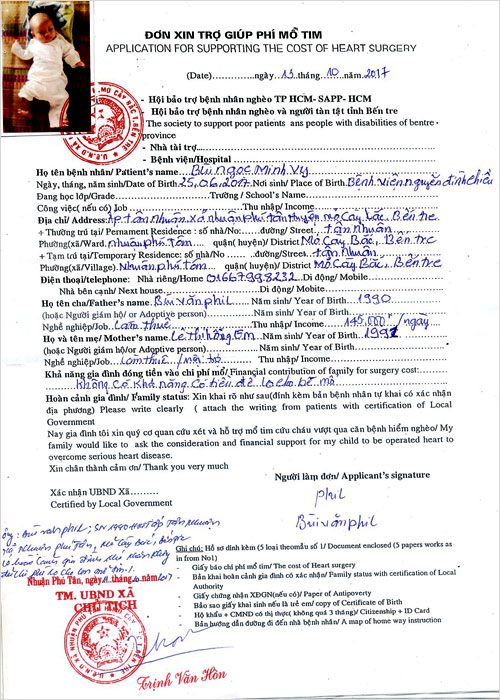 ĐƠN XIN TRỢ GIÚP PHÍ MỔ TIM
APPLICATION FOR SUPPORTING THE COST OF HEART SURGERY
(Date)..............ngày..13..tháng..10..năm..2017
- Hội bảo trợ bệnh nhân nghèo TP HCM- SAPP- HCM
- Hội bảo trợ bệnh nhân nghèo và người tàn tật tỉnh Bến tre
The society to support poor patients ans people with disabilities of bentre -
province
- Nhà tài trợ
- Bệnh viện/Hospital
Họ tên bệnh nhân/ Patient's name Bùi ngọc Minh Vy
Ngày, tháng, năm sinh/Date of Birth 25.06.2017 Nơi sinh/ Place of Birth Bệnh viện nguyễn đình chiểu
Đang học lớp/Grade Trường / School's Name
Công việc( nếu có) Job Thu nhập/ Income
Địa chỉ/ Address: ấp tân Nhuận, xã nhuận phú tân, huyện mỏ Cày Bắc, Bến tre
+ Thường trú tại/ Permanent Residence : số nhà/No: đường/ Street tân nhuận
Phường(xã/Ward. nhuận phú tân quận( huyện)/ District Mỏ Cày Bắc, Bến tre
+ Tạm trú tại/Temporary Residence: số nhà/No đường/Street: tân Nhuận
Phường(xã/Village) Nhuận phú tân quận( huyện)/ District Mỏ Cày Bắc, Bến tre
Điện thoại/telephone: Nhà riêng/Home 01667993232 Di động / Mobile
Nhà bên cạnh/ Next house Di động / Mobile
Họ tên cha/Father's name Bùi văn phil Năm sinh/ Year of Birth 1990
(hoặc Người giám hộ/ or Adoptive person) Năm sinh/ Year of Birth
Nghề nghiệp/Job. Làm thuê Thu nhập/ Income 145.000đ/ngày
Họ và tên mẹ/ Mother's name Lê thị hồng Em Năm sinh/ Year of Birth 1992
(hoặc Người giám hộ/or Adoptive person) Năm sinh/ Year of Birth
Nghề nghiệp/Job Làm thuê / nội trợ Thu nhập/ Income
Khả năng gia đình đóng tiền vào chi phí mổ/ Financial contribution of family for surgery cost:
không có khả năng có tiền để lo cho bé mổ
Hoàn cảnh gia đình/ Family status: Xin khai rõ như sau(đính kèm bản bệnh nhân tự khai có xác nhận
địa phương) Please write clearly ( attach the writing from patients with certification of Local
Government
Nay gia đình tôi xin quý cơ quan cứu xét và hỗ trợ mổ tim cứu cháu vượt qua căn bệnh hiểm nghèo/ My
family would like to ask the consideration and financial support for my child to be operated heart to
overcome serious heart disease.
Xin chân thành cảm ơn/ Thank you very much
Người làm đơn/ Applicant's signature
Xác nhận UBND Xã
Certified by Local Government
phil
Bùi văn phil
Ông: Bùi văn phil; SN 1990
Nhuận Phú Tân, ngày tháng 10 năm 2017
TM. UBND XÃ
CHỦ TỊCH
Trịnh Văn Hôn
Ghi chú: Hồ sơ đính kèm (5 loại theomẫu số 1/ Document enclosed (5 papers works as
in from No1)
- Giấy báo chi phí mổ tim/ The cost of Heart surgery
- Bản khai hoàn cảnh gia đình có xác nhận/ Family status with certification of Local
Authority
- Giấy chứng nhận XĐGN(có)/ Paper of Antipoverty
- Bản sao giấy khai sinh nếu là trẻ em/ copy of Certificate of Birth
- Hộ khẩu + CMND có thị thực( không quá 3 tháng)/ Citizenship + ID Card
- Bản hướng dẫn đường đi đến nhà bệnh nhân/ A map of home way instruction